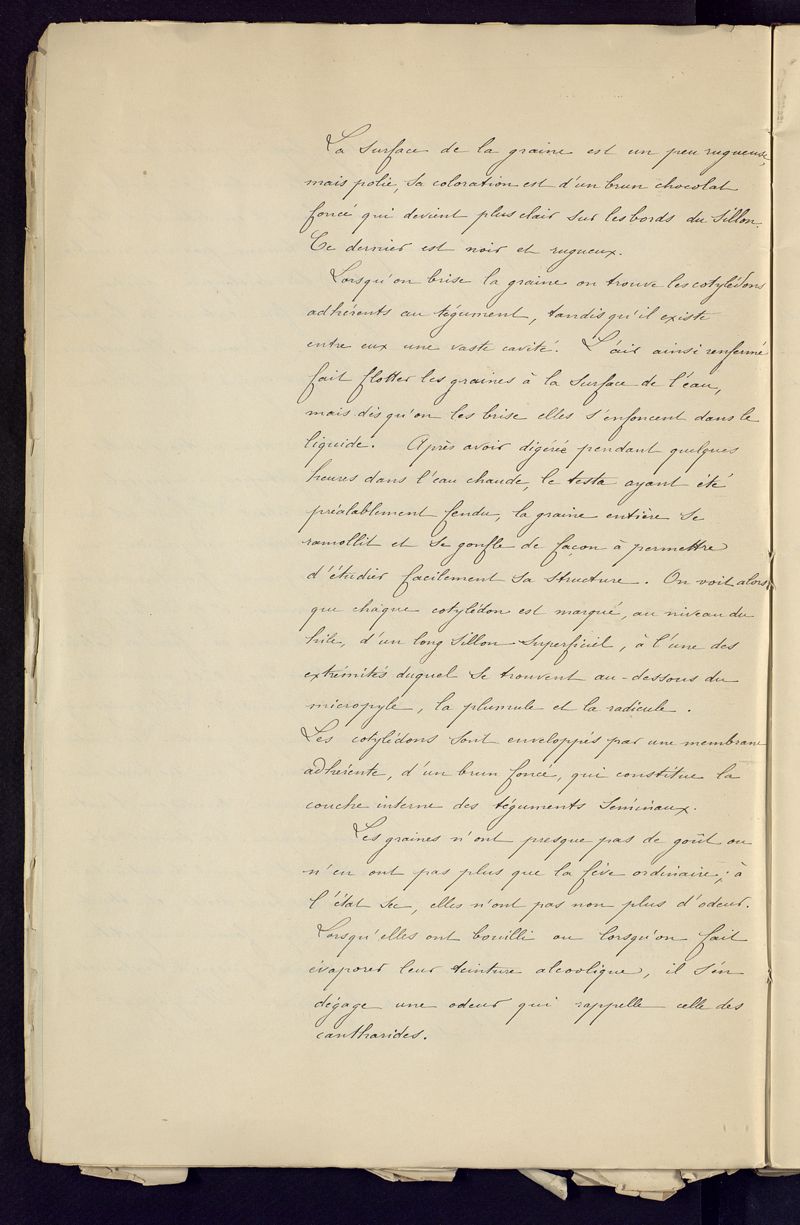 La surface de la graine est un peu rugueuse,
mais polie, sa coloration est d'un brun chocolat
foncé qui devient plus clair sur les bords du sillon.
Ce dernier est noir et rugueux.
Lorsqu'on brise la graine on trouve les cotylédons
adhérents au tégument, tandis qu'il existe
entre eux une vaste cavité. L'air ainsi renfermé
fait flotter les graines à la surface de l'eau,
mais dès qu'on les brise elles s'enfoncent dans le
liquide. Après avoir digérée pendant quelques
heures dans l'eau chaude, le testa ayant été
préalablement fendu, la graine entière se
ramollit et se gonfle de façon à permettre
d'étudier facilement sa structure. On voit alors
que chaque cotylédon est marqué, au niveau du
hile, d'un long sillon superficiel, à l'une des
extrémités duquel se trouvent au-dessous du
micropyle, la plumule et la radicule.
Les cotylédons sont enveloppés par une membrane
adhérente, d'un brun foncé, qui constitue la
couche interne des téguments séminaux.
Les graines n'ont presque pas de goût ou
n'en ont pas plus que la fève ordinaire; à
l'état sec, elles n'ont pas non plus d'odeur.
Lorsqu'elles ont bouilli ou lorsqu'on fait
évaporer leur teinture alcoolique, il s'en
dégage une odeur qui rappelle celle des
cantharides.